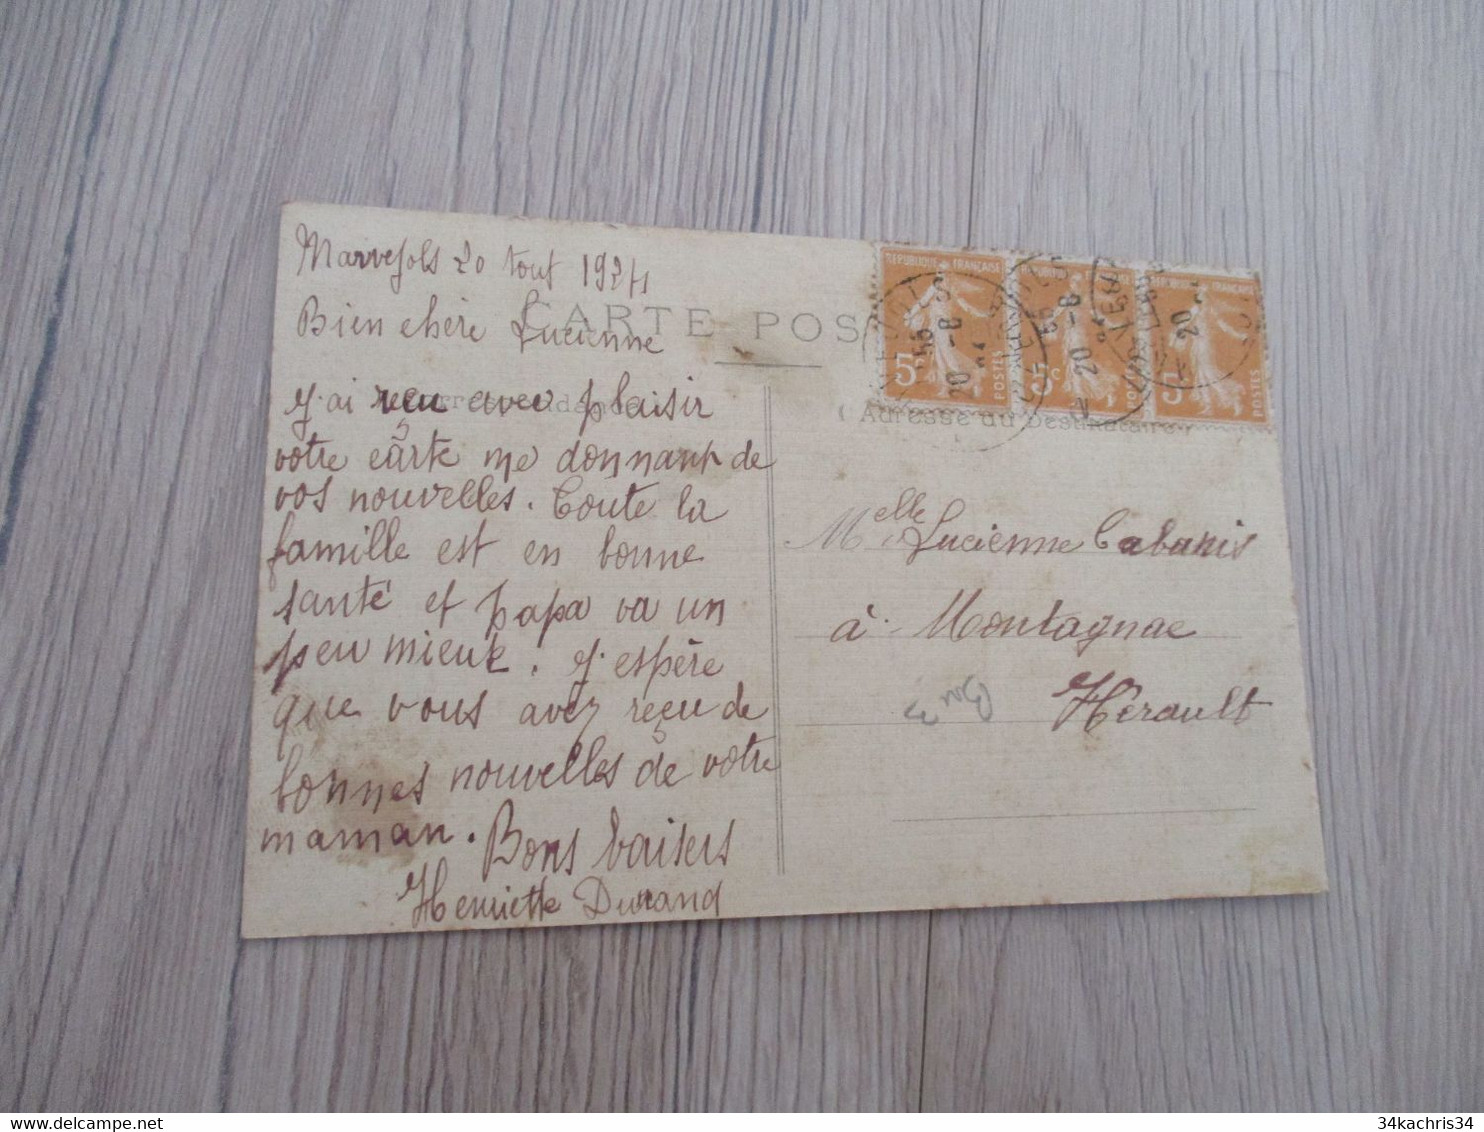 Marvejols 20 Aout 1924
CARTE POS
Bien chère Lucienne
Correspondance
J'ai reçu avec plaisir
votre carte me donnant de
vos nouvelles. Toute la
famille est en bonne
santé et papa va un
peu mieux. J'espère
que vous avez reçu de
bonnes nouvelles de votre
maman. Bons baisers
Henriette Durand
REPUBLIQUE FRANÇAISE
5c POSTES
5c POSTES
5c POSTES
20 -8
20 -8
20
Adresse du Destinataire
Melle Lucienne Cabanis
à Montagnac
Hérault
34kachris34